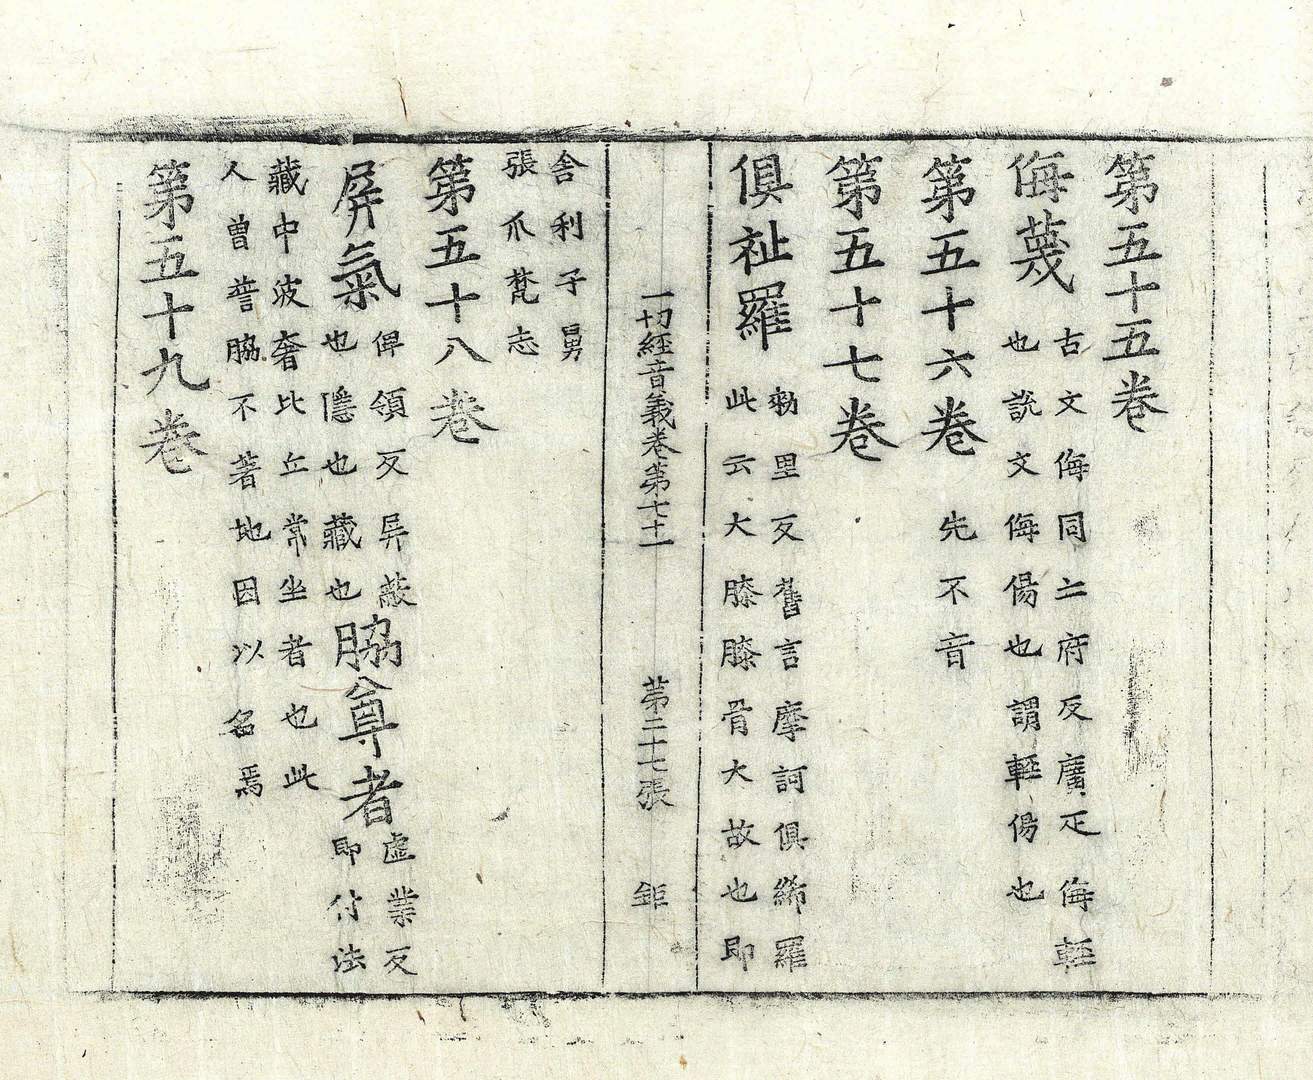 第五十五卷
侮蔑
古文侮同亡府反廣疋侮輕
也說文侮傷也謂輕傷也
第五十六卷
先不音
第五十七卷
俱祉羅
勑里反舊言摩訶俱絺羅
此云大膝膝骨大故也即
一切經音義卷第七十一 第二十七張 鉅
舎利子舅
張爪梵志
第五十八卷
屏氣
俾領反屏蔽
也隱也藏也
脇尊者
虛業反
即付法
藏中波奢比丘常坐者也此
人曾誓脇不著地因以名焉
第五十九卷